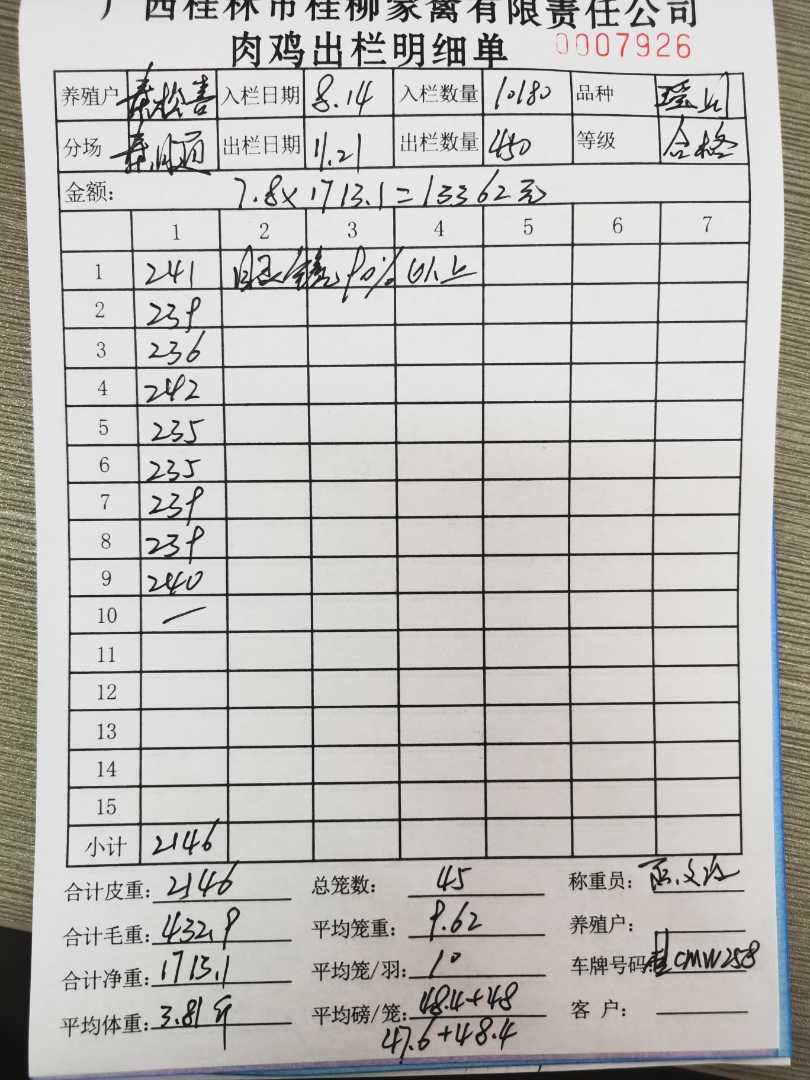 广西桂林市桂柳家禽有限责任公司
肉鸡出栏明细单 0007926
养殖户 入栏日期 8.14 入栏数量 10180 品种
分场 出栏日期 11.21 出栏数量 450 等级 合格
金额: 7.8×1713.1=13362元
1 2 3 4 5 6 7
1 241 90% 以上
2 239
3 236
4 242
5 235
6 235
7 239
8 239
9 240
10 —
11
12
13
14
15
小计 2146
合计皮重: 2146 总笼数: 45 称重员:
合计毛重: 432.9 平均笼重: 9.62 养殖户:
合计净重: 1713.1 平均笼/羽: 10 车牌号码: 桂CMW258
平均体重: 3.81斤 平均磅/笼: 48.4+48 客 户:
47.6+48.4